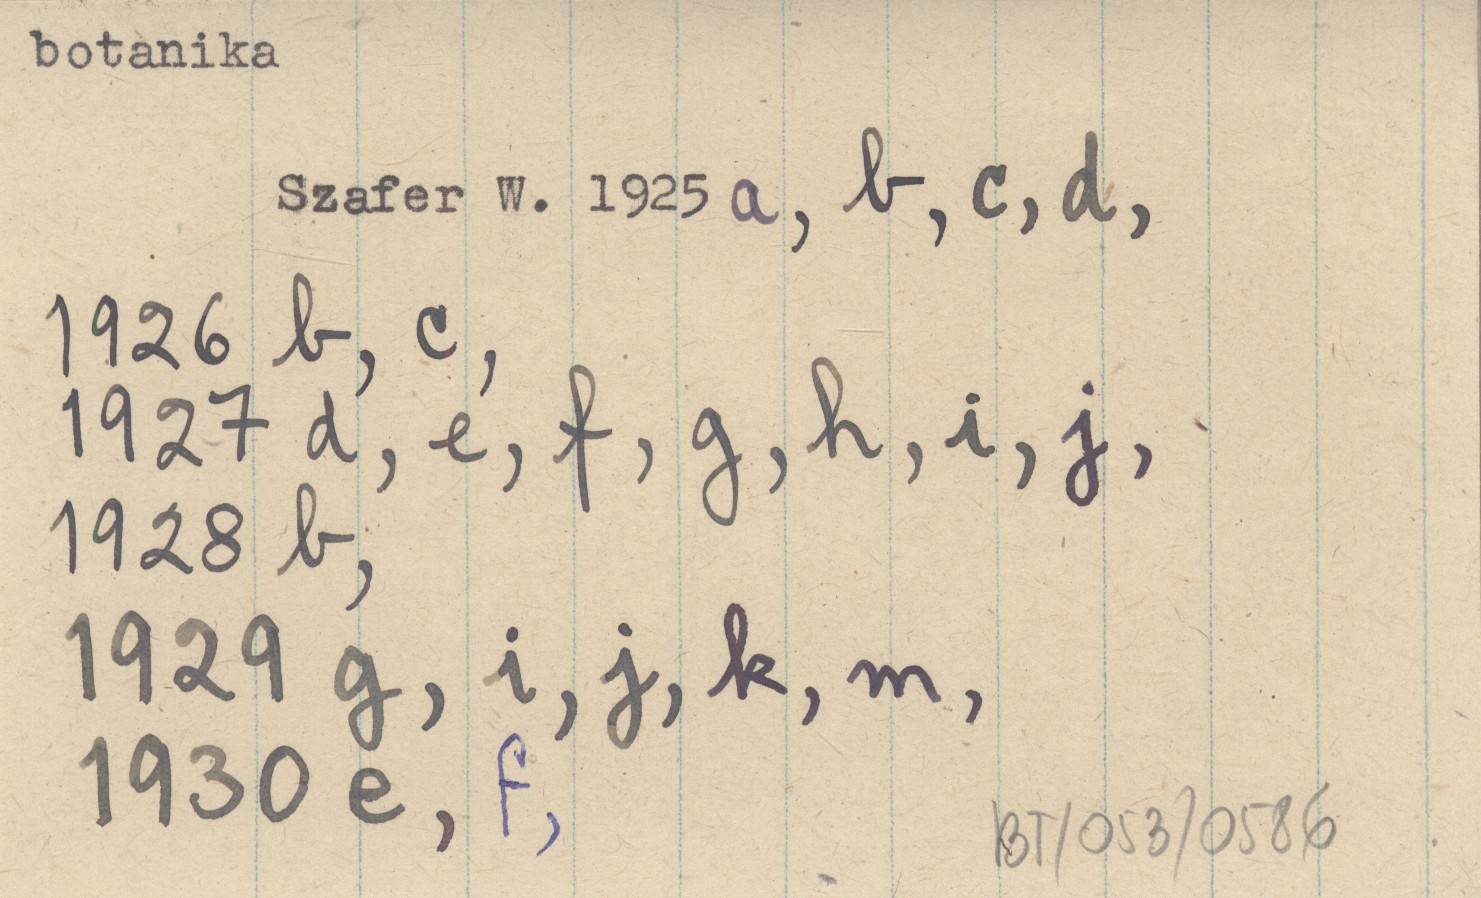 botanika
Szafer W. 1925 a, b, c, d,
1926 b, c,
1927 d, e, f, g, h, i, j,
1928 b,
1929 g, i, j, k, m,
1930 e, f,
BT/053/0586